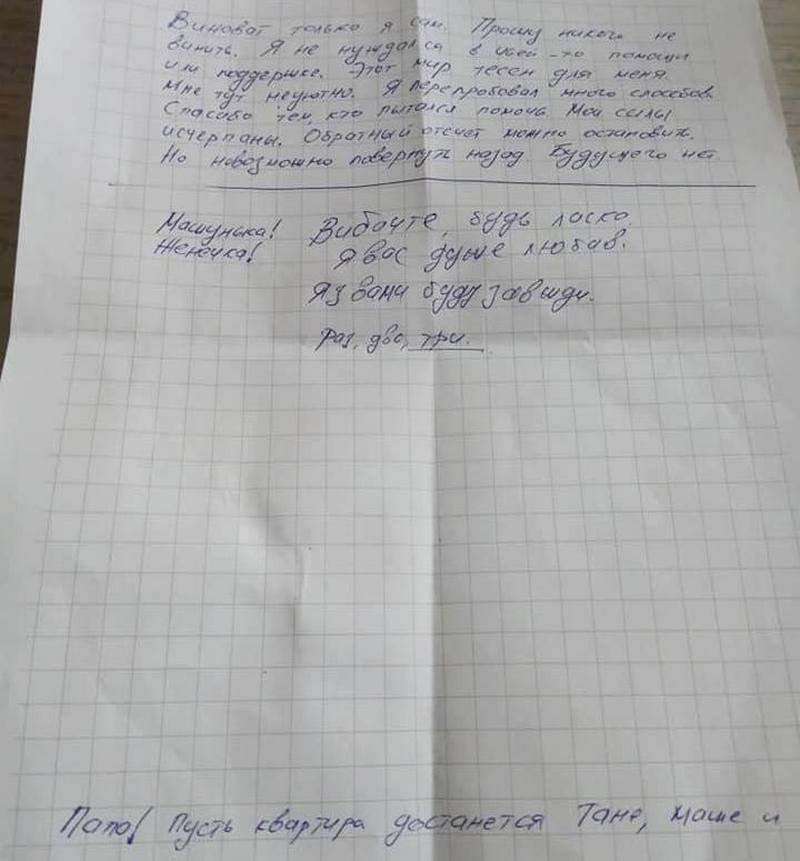 Виноват только я сам. Прошу никого не
винить. Я не нуждался в чьей-то помощи
или поддержке. Этот мир тесен для меня.
Мне тут неуютно. Я перепробовал много способов.
Спасибо тем, кто пытался помочь. Мои силы
исчерпаны. Обратный отсчет можно остановить.
Но невозможно повернуть назад. Будущего нет.
Машунька! Вибачте, будь ласка.
Женечка! Я вас дуже любив.
Я з вами буду завжди.
Раз, два, три.
Папа! Пусть квартира достанется Тане, Маше и